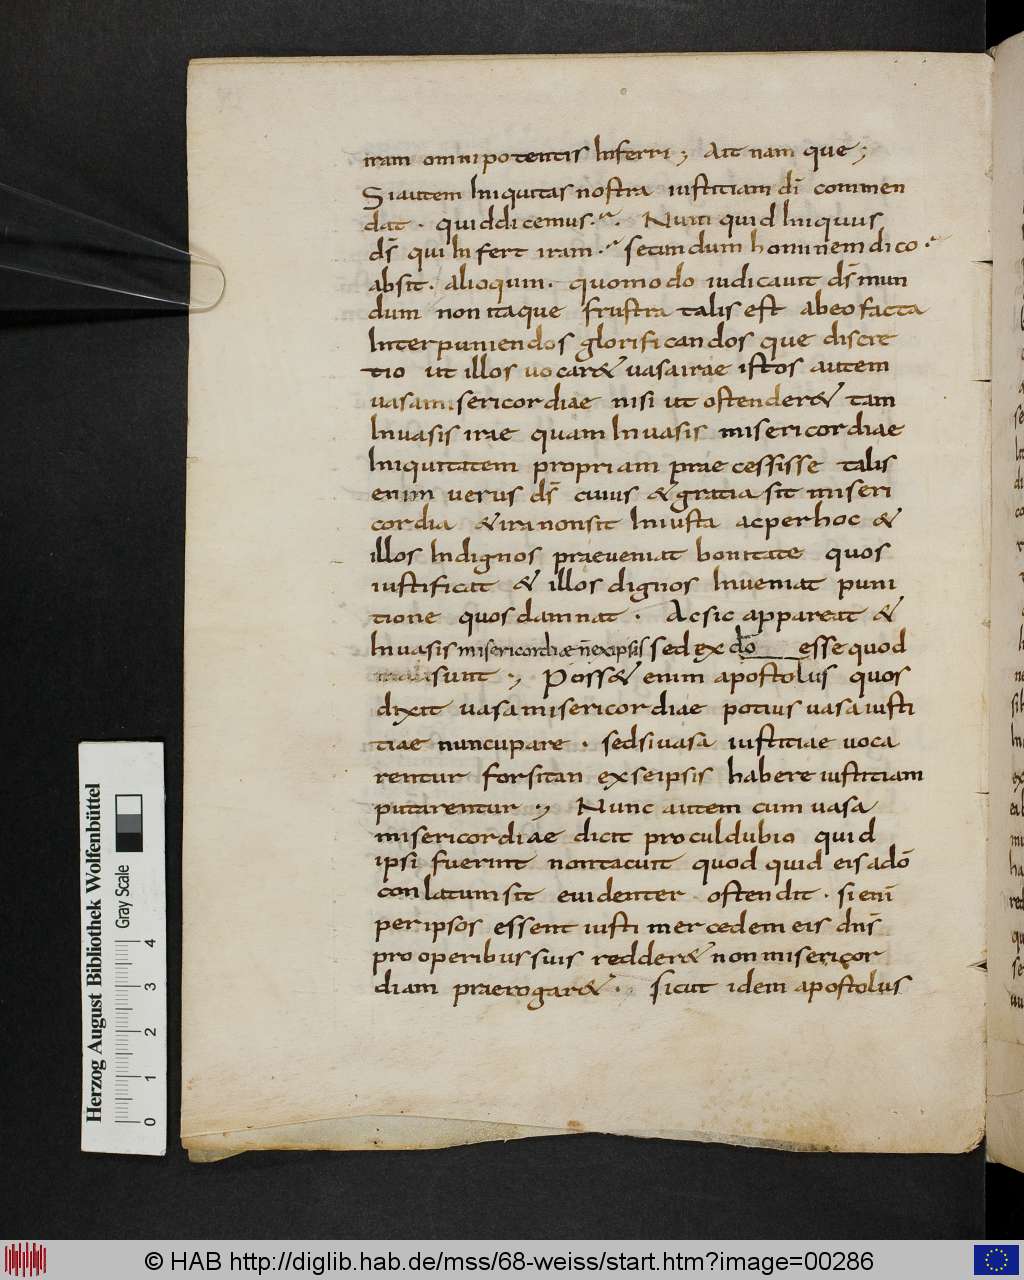 iram omnipotentis Inferri; Ait nam que;
Siautem Iniquitas nostra iustitiam dī commen
dat · quiddicemus · Num quid Iniquus
ds̄ qui Infert iram · secundum hominem dico ·
absit · alioquin · quomodo iudicauit ds̄ mun
dum non itaque frustra talis est abeo facta
Interpuniendos glorificandos que discre
tio ut illos uocar& uasairae istos autem
uasamisericordiae nisi ut ostender& tam
Inuasis irae quam Inuasis misericordiae
Iniquitatem propriam praecessisse talis
enim uerus ds̄ cuius & gratia sit miseri
cordia & iranonsit Iniusta acperhoc &
illos Indignos praeueniat bonitate quos
iustificat & illos dignos Inueniat puni
tione quos damnat · Acsic appareat &
Inuasis misericordiæ n̄ exipsis sed ex dō esse quod
sunt ; Poss& enim apostolus quos
dixit uasamisericordiae potius uasaiusti
tiae nuncupare · sedsiuasa iustitiae uoca
rentur forsitan exseipsis habere iustitiam
putarentur ; Nunc autem cum uasa
misericordiae dicit proculdubio quid
ipsi fuerint nontacuit quod quid eis adō
conlatumsit euidenter ostendit · si enī
peripsos essent iusti mercedem eis dn̄s
pro operibus suis redder& non misericor
diam praerogar& · sicut idem apostolus
Herzog August Bibliothek Wolfenbüttel
Gray Scale
0 1 2 3 4
© HAB http://diglib.hab.de/mss/68-weiss/start.htm?image=00286